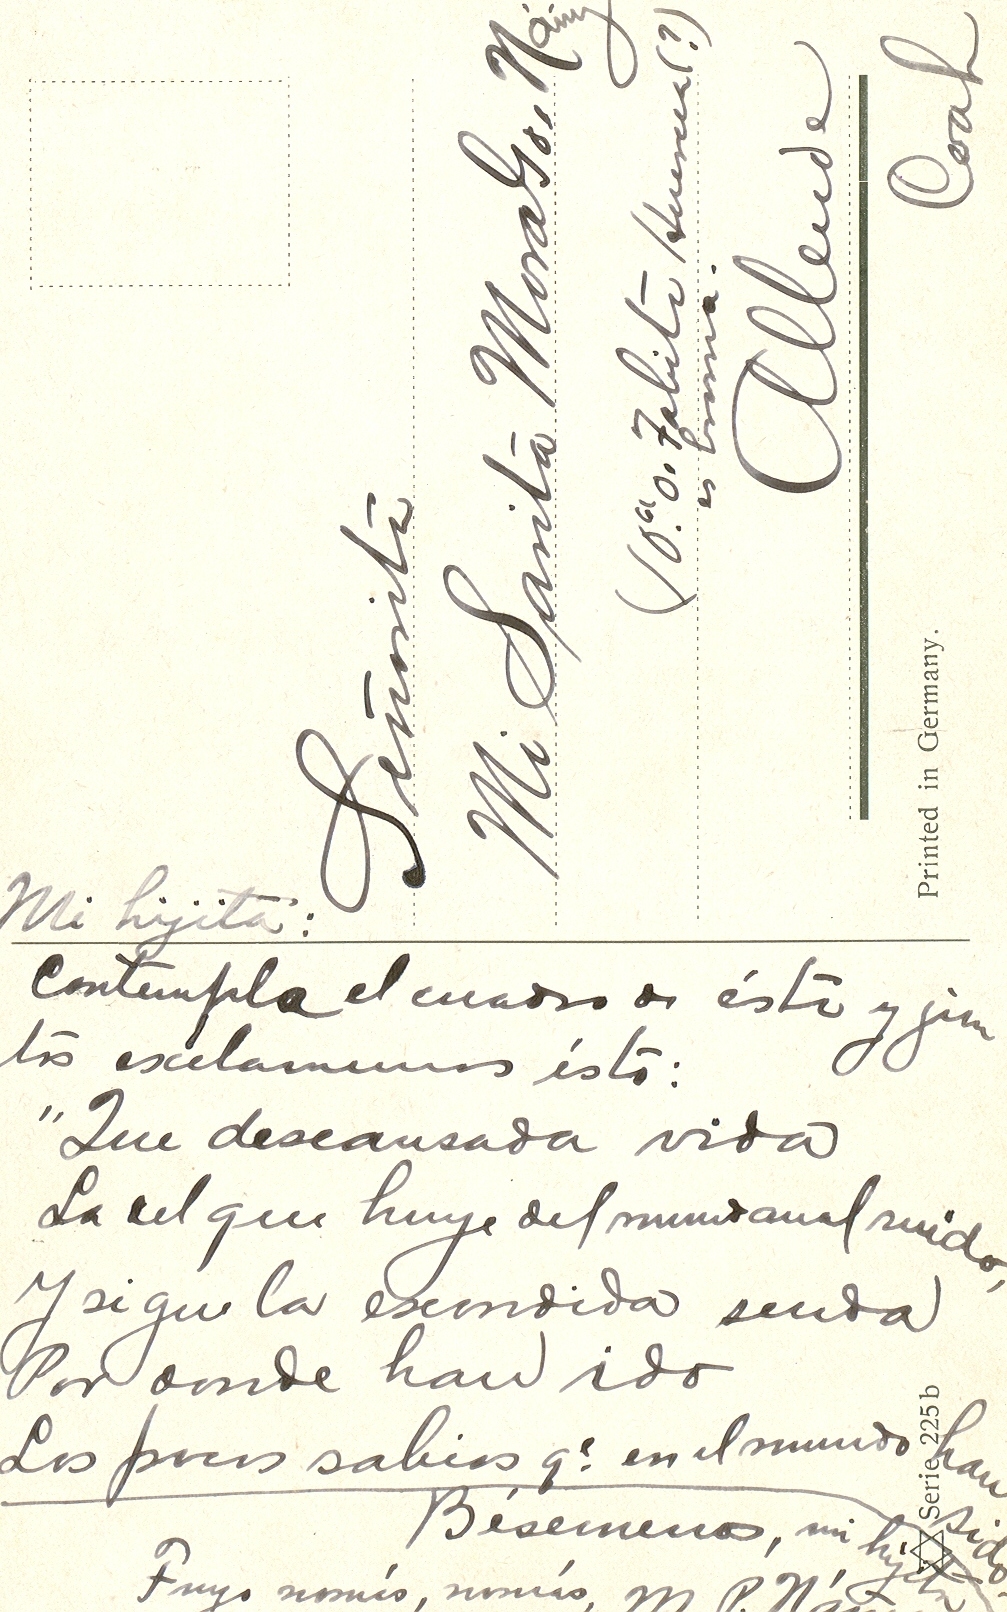 Señorita
Mi Sarita Mora Go, Náñez
(Sa. o. Fabita Huerua(?)
es broma.
Allende
Coah
Printed in Germany.
Mi hijita:
Contempla el cuadro de ésta y jun
tos exclamemos ésto:
"Que descansada vida
La del que huye del mundanal ruido,
Y sigue la escondida senda
Por donde han ido
Los pocos sabios qe. en el mundo han
sido
Bésemenos, mi hijita
Tuyo nomás, nomás, M. P. Náñez
Serie 225 b